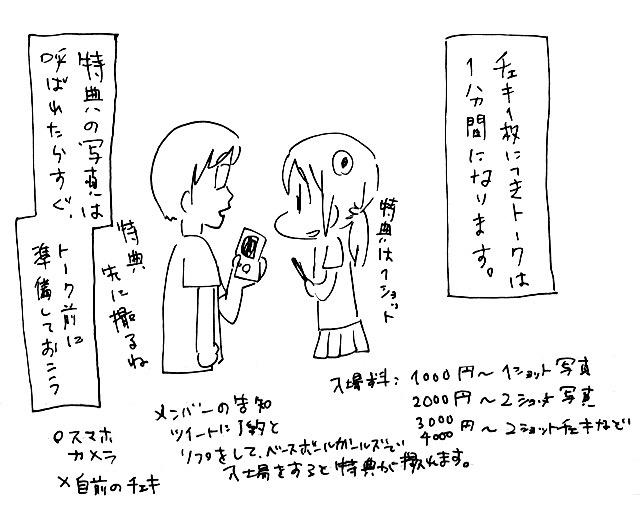 チェキ1枚につきトークは
1分間になります。
特典の写真は
呼ばれたらすぐ、
トーク前に
準備しておこう
特典は1ショット
特典
先に撮るね
入場料：1000円〜1ショット写真
2000円〜2ショット写真
3000
4000円〜2ショットチェキなど
メンバーの告知
ツイートに予約と
リプをして、ベースボールガールズで
入場をすると特典が撮れます。
○スマホ
カメラ
×自前のチェキ